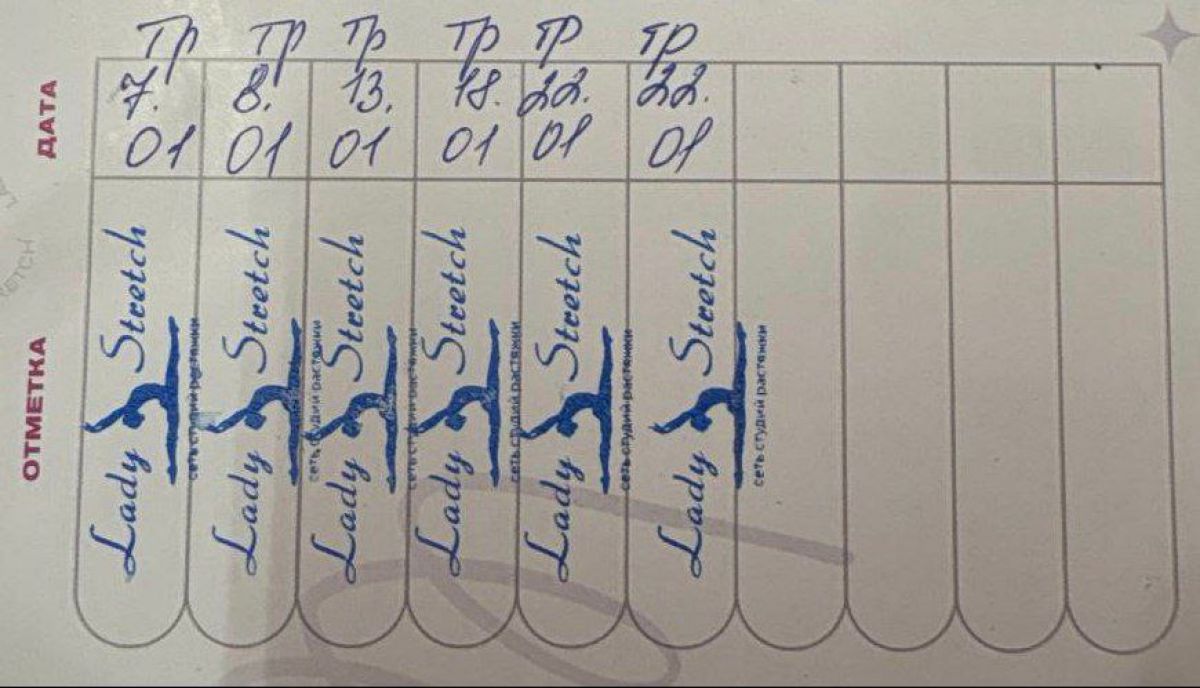 ДАТА
тр тр тр тр тр тр
7. 8. 13. 18. 22. 22.
01 01 01 01 01 01
ОТМЕТКА
Lady Stretch
сеть студий растяжки
Lady Stretch
сеть студий растяжки
Lady Stretch
сеть студий растяжки
Lady Stretch
сеть студий растяжки
Lady Stretch
сеть студий растяжки
Lady Stretch
сеть студий растяжки